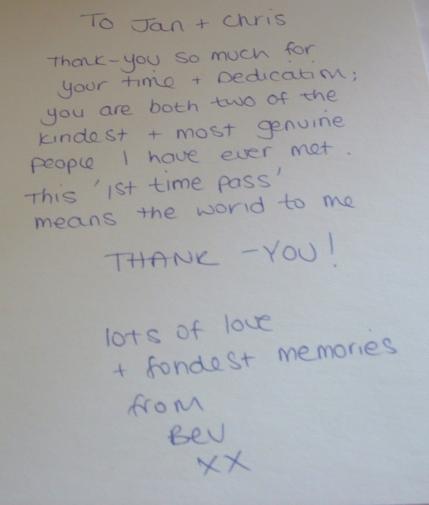 To Jan + Chris
Thank-you so much for
your time + Dedication;
you are both two of the
kindest + most genuine
people I have ever met.
This '1st time pass'
means the world to me
THANK - YOU!
lots of love
+ fondest memories
from
Bev
xx